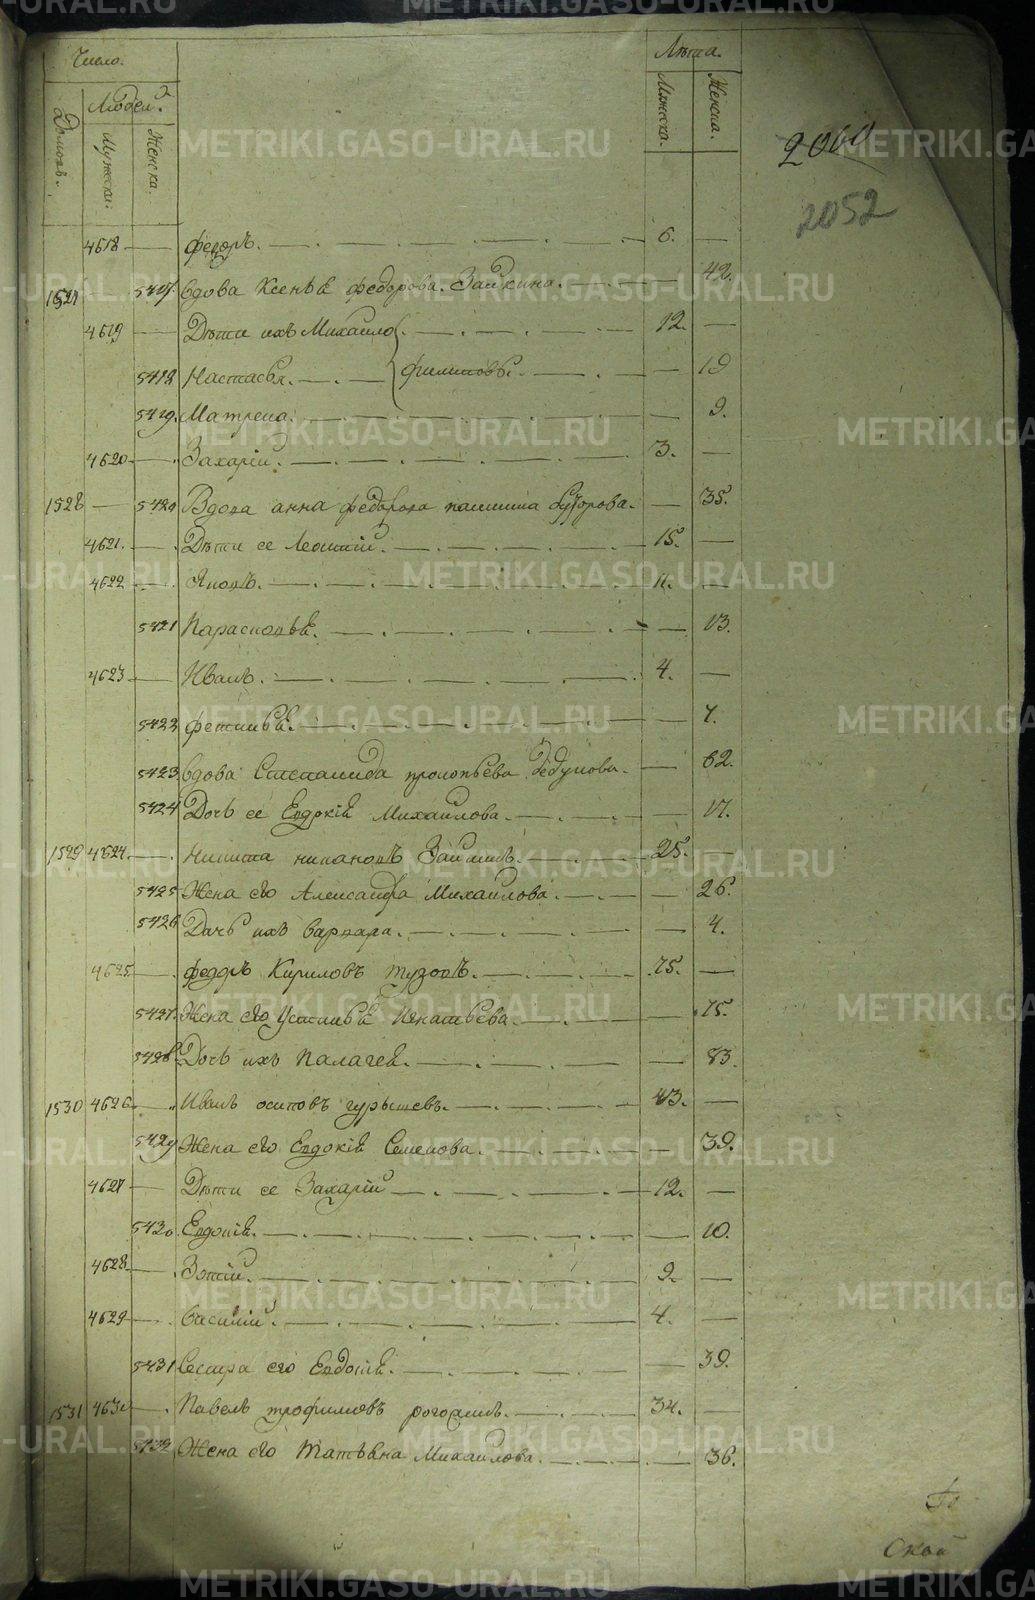 Число.
Лѣта.
Людей.
Домовъ.
Мужска.
Женска.
Мужска.
Женска.
2060
2052
4618 Федоръ. 6.
1527 5417. Вдова Ксенья Федорова Зайкина. 42.
4619 Дѣти ихъ Михайло 12.
5418 Настасья. Филиповы. 19
5419. Матрена. 9.
4620 Захарій. 3.
1528 5420 Вдова анна федорова Буторова. 35.
4621. Дѣти ее Леонтій. 15.
4622 Яковъ. 11.
5421 Парасковья. 13.
4623 Иванъ. 4.
5422 Фетинья. 7.
5423 Вдова Степанида прокопьева Дедунова. 62.
5424 Дочь ее Евдокія Михайлова. 17.
1529 4624. Никита Зайкинъ. 25.
5425 Жена его Александра Михайлова. 26.
5426 Дочь ихъ варвара. 4.
4625 федоръ Кириловъ тузовъ. 75.
5427. Жена его Устинья Игнатьева. 75.
5428 Дочь ихъ палагея. 33.
1530 4626 Иванъ осиповъ гурышевъ. 43.
5429 Жена его Евдокія Семенова. 39.
4627 Дѣти ее Захарій 12.
5430. Евдокія. 10.
4628. Зотій. 9.
4629 Василій. 4.
5431 Сестра его Евдокія. 39.
1531 4630 Павелъ трофимовъ 34.
5432 Жена его Татьяна Михайлова. 36.
METRIKI.GASO-URAL.RU